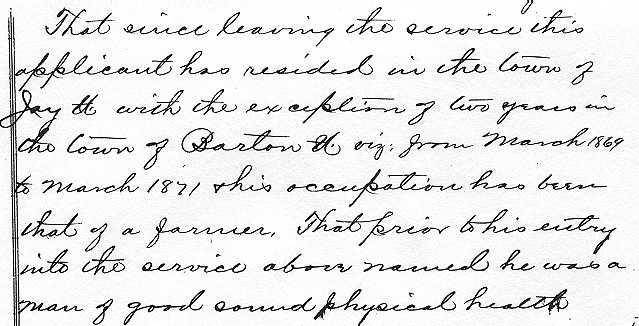 That since leaving the service this
applicant has resided in the town of
Jay Vt with the exception of two years in
the town of Barton Vt. viz: from March 1869
to March 1871 & his occupation has been
that of a farmer. That prior to his entry
into the service above named he was a
man of good sound physical health